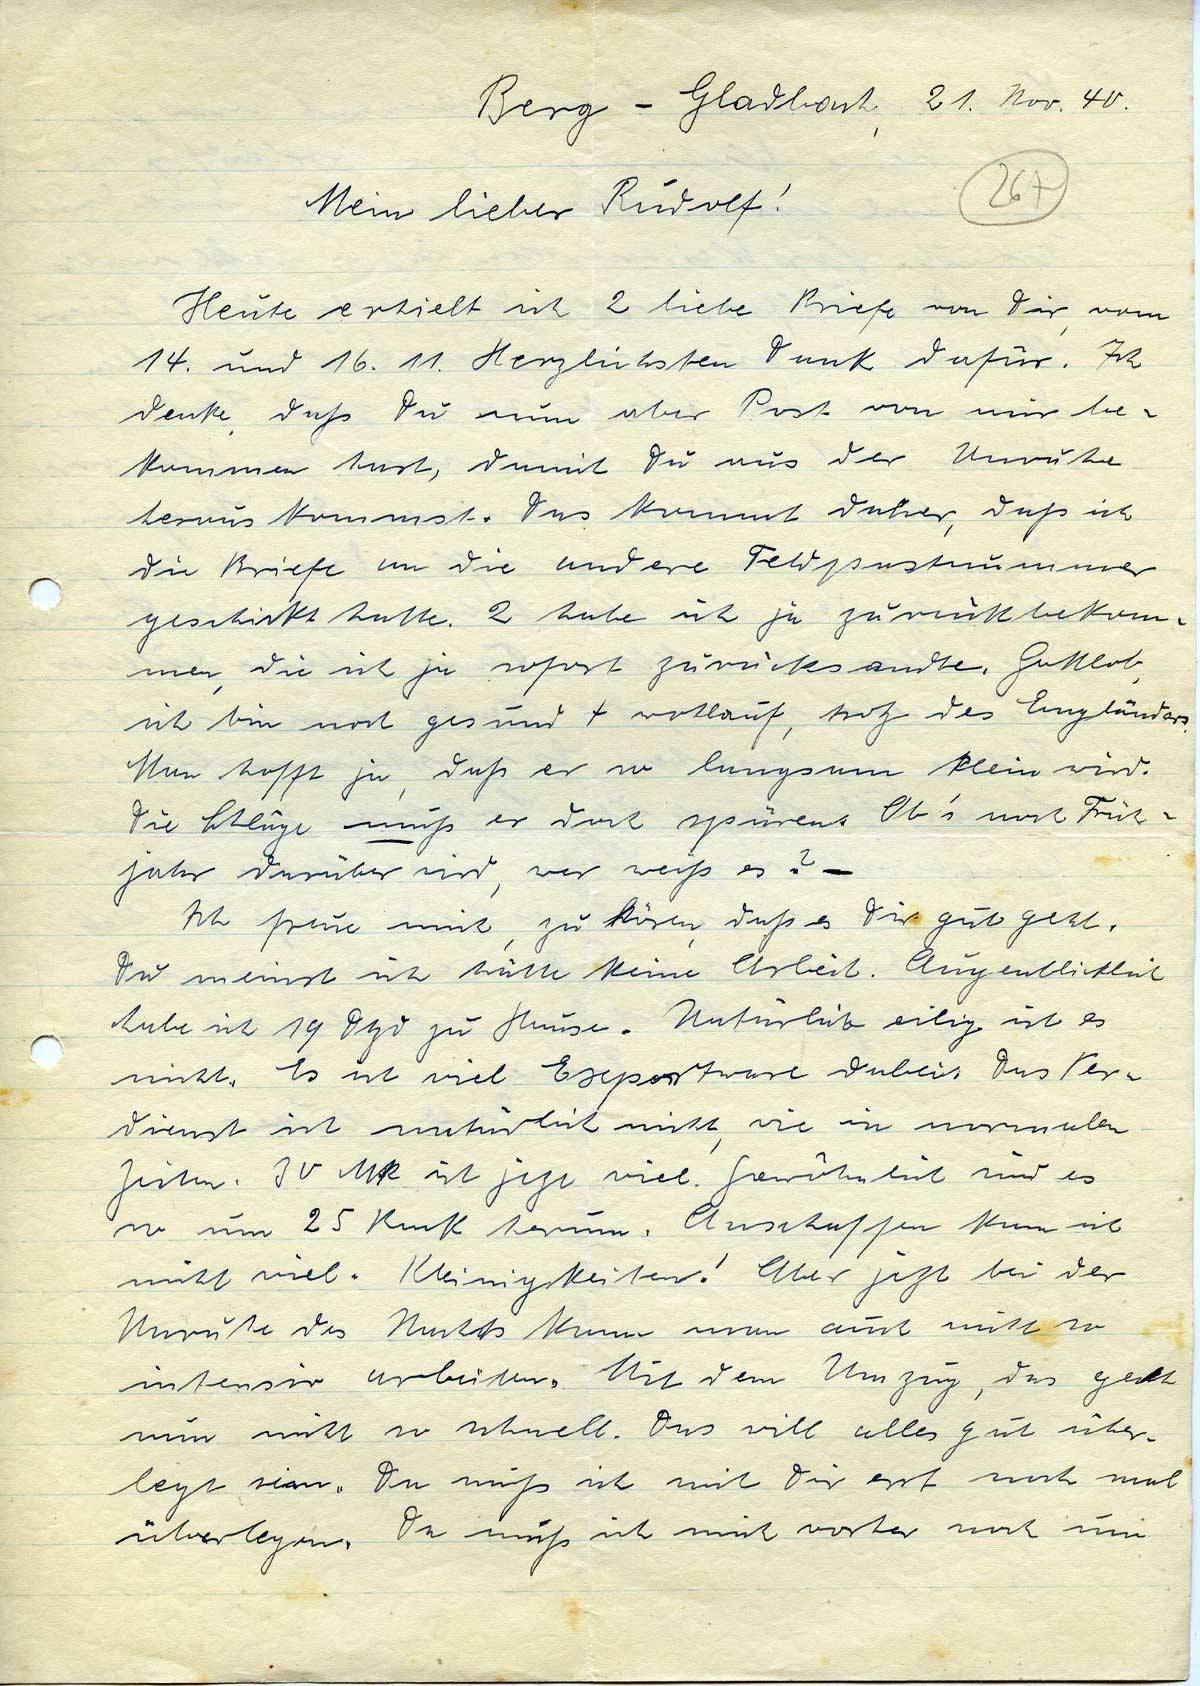 Berg - Gladbach, 21. Nov. 40.
267
Mein lieber Rudolf!
Heute erhielt ich 2 liebe Briefe von Dir, vom
14. und 16. 11. Herzlichsten Dank dafür. Ich
denke, daß Du nun aber Post von mir be-
kommen hast, damit Du aus der Unruhe
heraus kommst. Das kommt daher, daß ich
die Briefe an die andere Feldpostnummer
geschickt hatte. 2 habe ich ja zurückbekom-
men, die ich ja sofort zurücksandte. Gottlob,
ich bin noch gesund + wohlauf, trotz des Engländers.
Man hofft ja, daß er so langsam klein wird.
Die Schläge muß er doch spüren. Ob's noch Früh-
jahr darüber wird, wer weiß es? -
Ich freue mich, zu hören, daß es Dir gut geht.
Du meinst ich hätte keine Arbeit. Augenblicklich
habe ich 19 Dtzd zu Hause. Natürlich eilig ist es
nicht. Es ist viel Exportware dabei. Das Ver-
dienst ist natürlich nicht, wie in normalen
Zeiten. 30 Mk ist jezt viel. Gewöhnlich sind es
so um 25 Mark herum. Anschaffen kann ich
nicht viel. Kleinigkeiten! Aber jezt bei der
Unruhe des Nachts kann man auch nicht so
intensiv arbeiten. Mit dem Umzug, das geht
nun nicht so schnell. Das will alles gut über-
legt sein. Da muß ich mit Dir erst noch mal
überlegen. Da muß ich mich vorher noch um